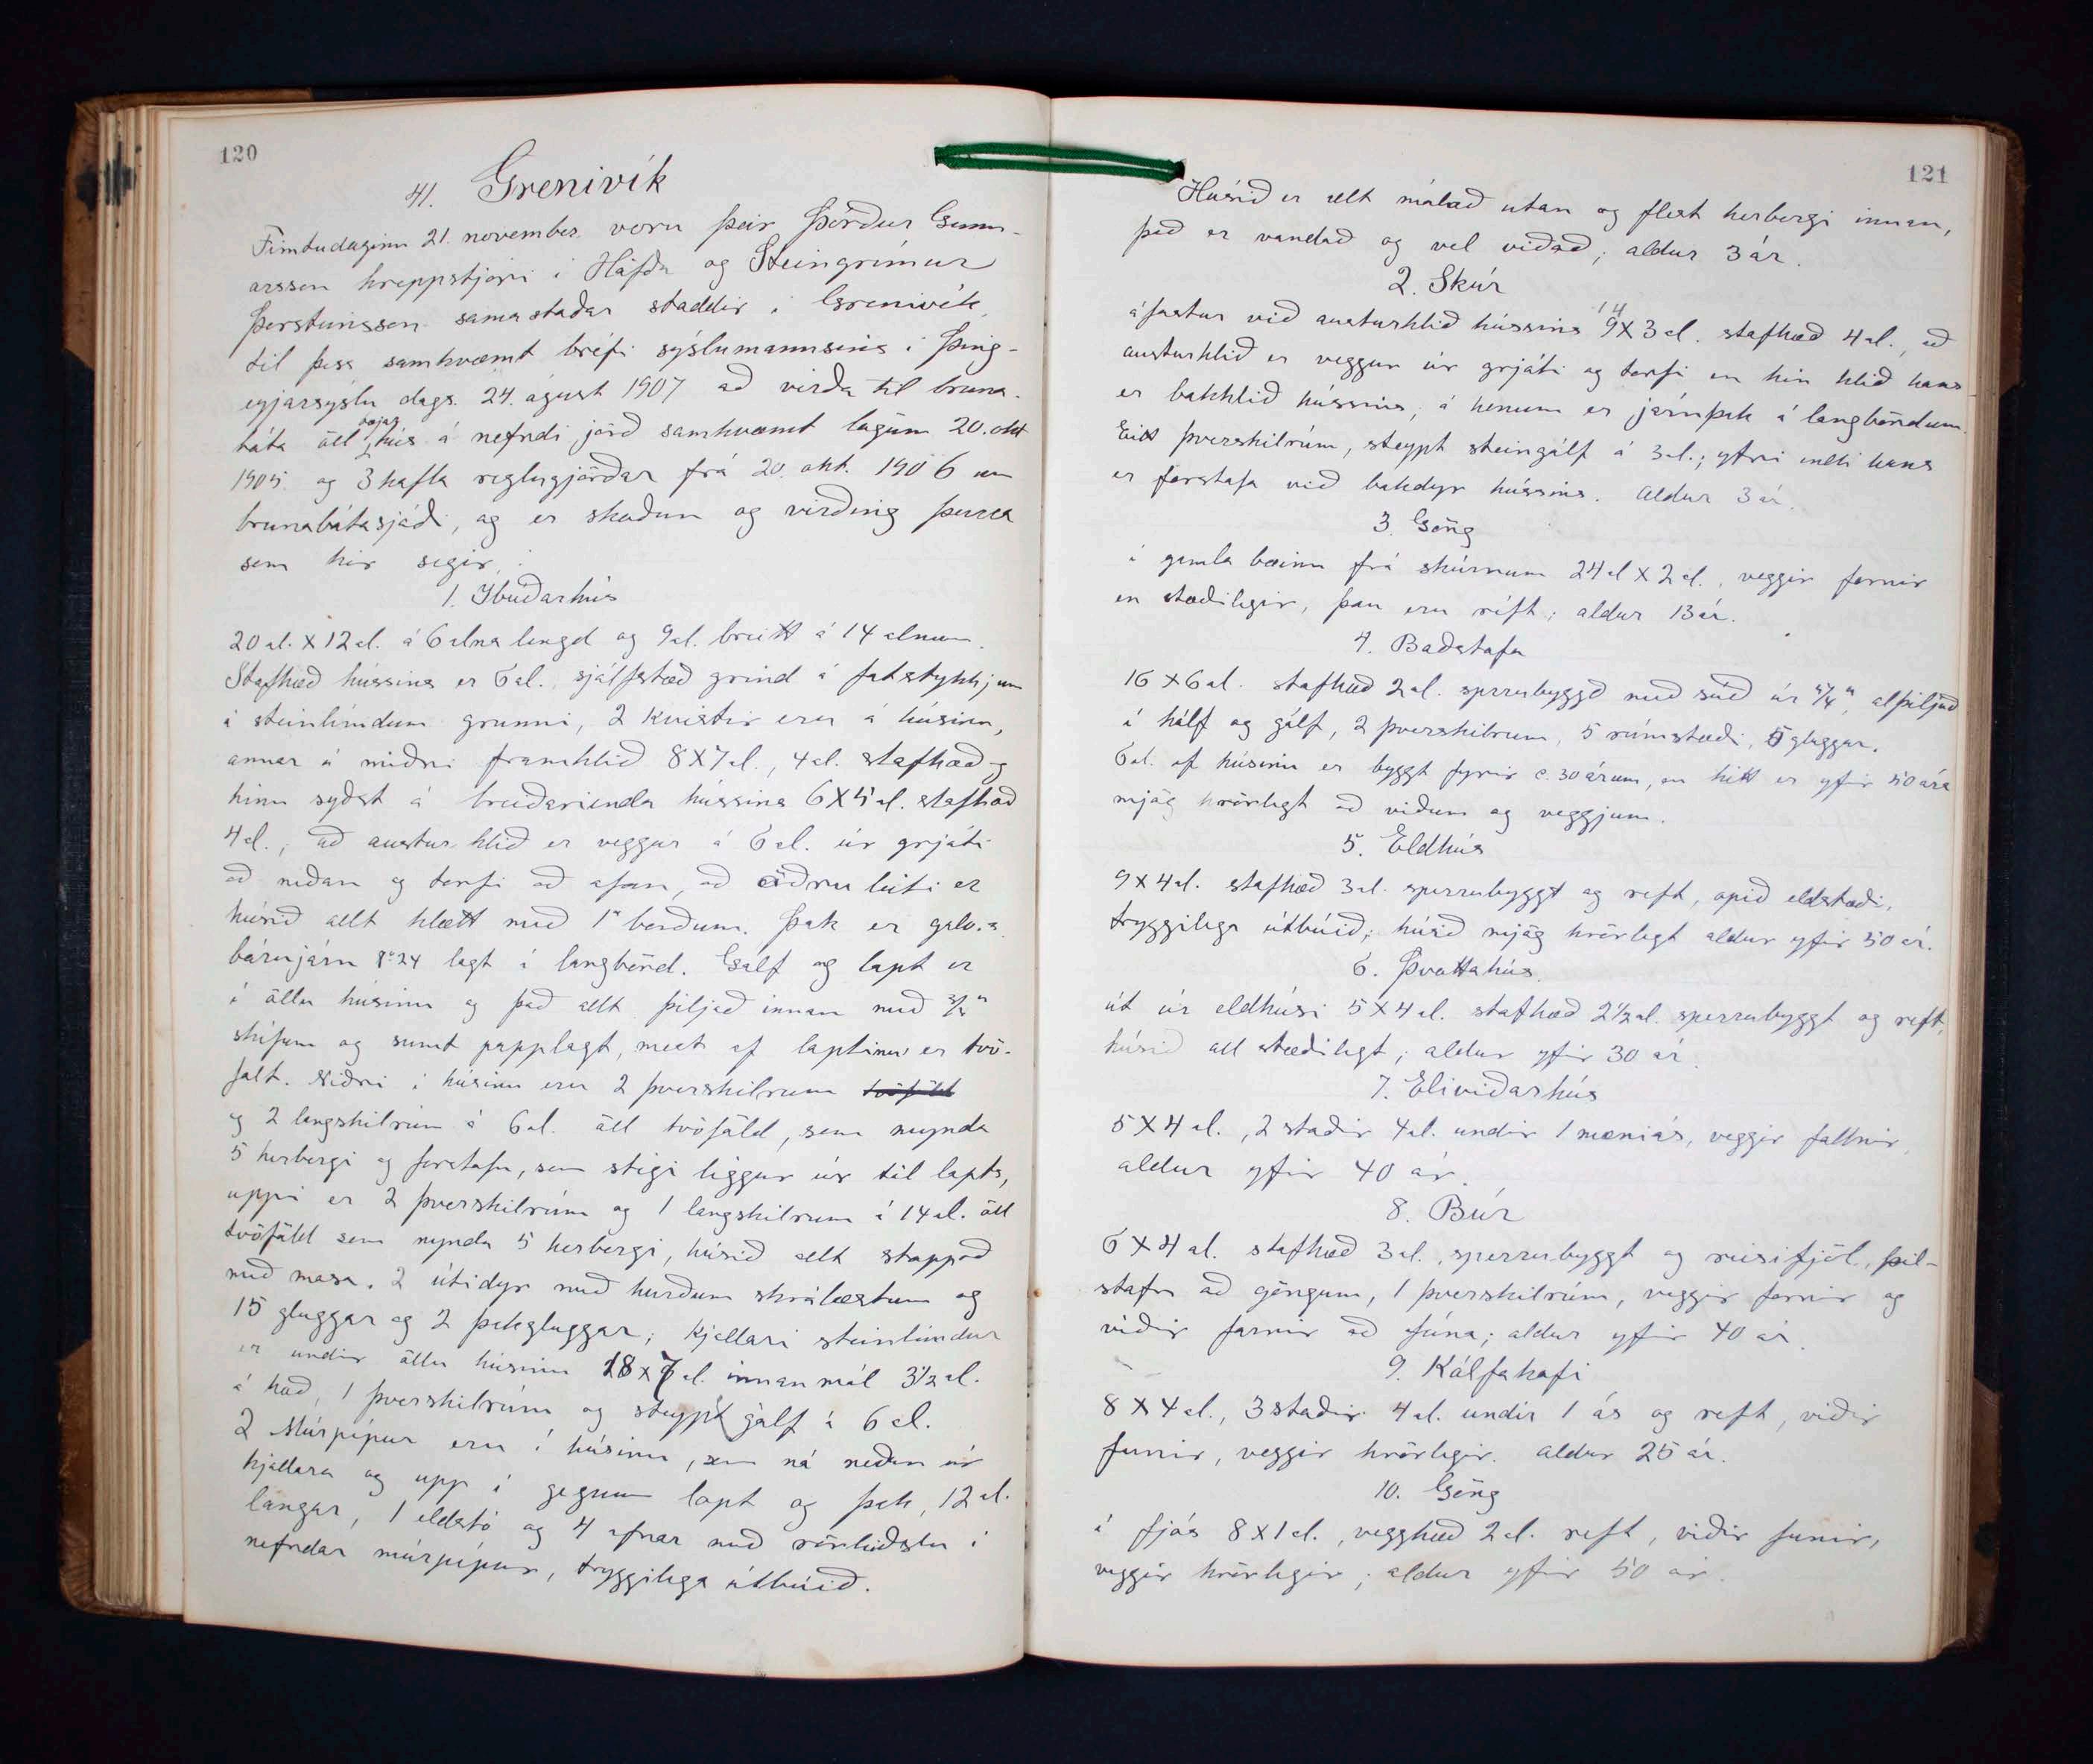 120
41. Grenivík
Fimtudaginn 21. november voru þeir Þórður Gunn-
arsson hreppstjóri í Höfða og Steingrímur
Þorsteinsson samastaðar staddir í Grenivík
til þess samkvæmt bréfi sýslumannsins í Þing-
eyjarsýslu dags. 24. ágúst 1907 að virða til bruna-
bóta öll bæjar hús á nefndri jörð samkvæmt lögum 20. okt
1905 og 3 kafla reglugjörðar frá 20. okt. 1906 um
brunabótasjóði, og er skoðun og virðing þeirra
sem hér segir:
1. Ibúðarhús
20 al. X 12 al. á 6 alna lengd og 9 al. breitt á 14 alnum.
Stafhæð hússins er 6 al. sjálfstæð grind á fotstykkjum
á steinlímdum grunni, 2 kvistir eru á húsinu,
annar á miðri framhlið 8X7 al., 4 al. stafhæð og
hinn syðst á breiðarienda hússins 6X5 al. stafhæð
4 al., að austurhlið er veggur á 6 al. úr grjóti
að neðan og torfi að ofan, að öðru leiti er
húsið allt klætt með 1" borðum. Þak er galv.
bárujárn No 24 lagt á langbönd. Gólf og lopt er
í öllu húsinu og það allt þiljað innan með 3/4"
skífum og sumt papplagt, mest af loptinu er tvö-
falt. Niðri í húsinu eru 2 þverskilrum tvöföld
og 2 langskilrúm á 6 al. öll tvöföld, sem mynda
5 herbergi og forstofu, sem stigi liggur úr til lopts,
uppi er 2 þverskilrúm og 1 langskilrum á 14 al. öll
tvöföld sem mynda 5 herbergi, húsið allt stoppað
með mosa. 2 útidyr með hurðum skrálæstum og
15 gluggar og 2 þakgluggar; kjallari steinlímdur
er undir öllu húsinu 18x7 al. innanmál 3½ al.
á hæð, 1 þverskilrúm og steypt gólf á 6 al.
2 Múrpípur eru í húsinu, sem ná neðan úr
kjallara og upp í gegnum lopt og þak, 12 al.
langar, 1 eldstó og 4 ofnar með rörleiðslu í
nefndar múrpípur, tryggilega útbúið.
121
Húsið er allt málað utan og flest herbergi innan,
það er vandað og vel viðað; aldur 3 ár.
2. Skúr
áfastur við austurhlið hússins 14 9X3 al. stafhæð 4 al., að
austurhlið er veggur úr grjóti og torfi en hin hlið hans
er bakhlið hússins, á honum er járnþak á langböndum.
Eitt þverskilrúm, steypt steingólf á 3 al.; yfri endi hans
er forstofa við bakdyr hússins. Aldur 3 ár.
3. Göng
í gamla bæinn frá skúrnum 24 al X 2 al., veggir fornir
en stæðilegir, þau eru réft; aldur 13 ár.
4. Baðstofa
16 X 6 al. stafhæð 2 al. sperrubyggð með súð úr 3/4", alþiljuð
í hólf og gólf, 2 þverskilrum, 5 rúmstæði, 5 gluggar.
6 al. af húsinu er byggt fyrir c. 30 árum, en hitt er yfir 50 ára
mjög hrörlegt að viðum og veggjum.
5. Eldhús
9X4 al. stafhæð 3 al. sperrubyggt og reft, opið eldstæði,
tryggilega útbúið; húsið mjög hrörlegt aldur yfir 50 ár.
6. Þvottahús
út úr eldhúsi 5X4 al. stafhæð 2½ al. sperrubyggt og reft,
húsið all stæðilegt; aldur yfir 30 ár
7. Eliviðarhús
5X4 al., 2 staðir 4 al. undir 1 mæniás, veggir fallnir,
aldur yfir 40 ár.
8. Búr
6X4 al. stafhæð 3 al., sperrubyggt og reisifjöl, þil-
stafn að göngum, 1 þverskilrúm, veggir fornir og
viðir farnir að fúna; aldur yfir 40 ár.
9. Kálfakofi
8X4 al., 3 staðir 4 al. undir 1 ás og reft, viðir
funir, veggir hrörlegir. Aldur 25 ár.
10. Göng
í fjós 8X1 al., vegghæð 2 al. reft, viðir funir,
veggir hrörlegir; aldur yfir 50 ár.